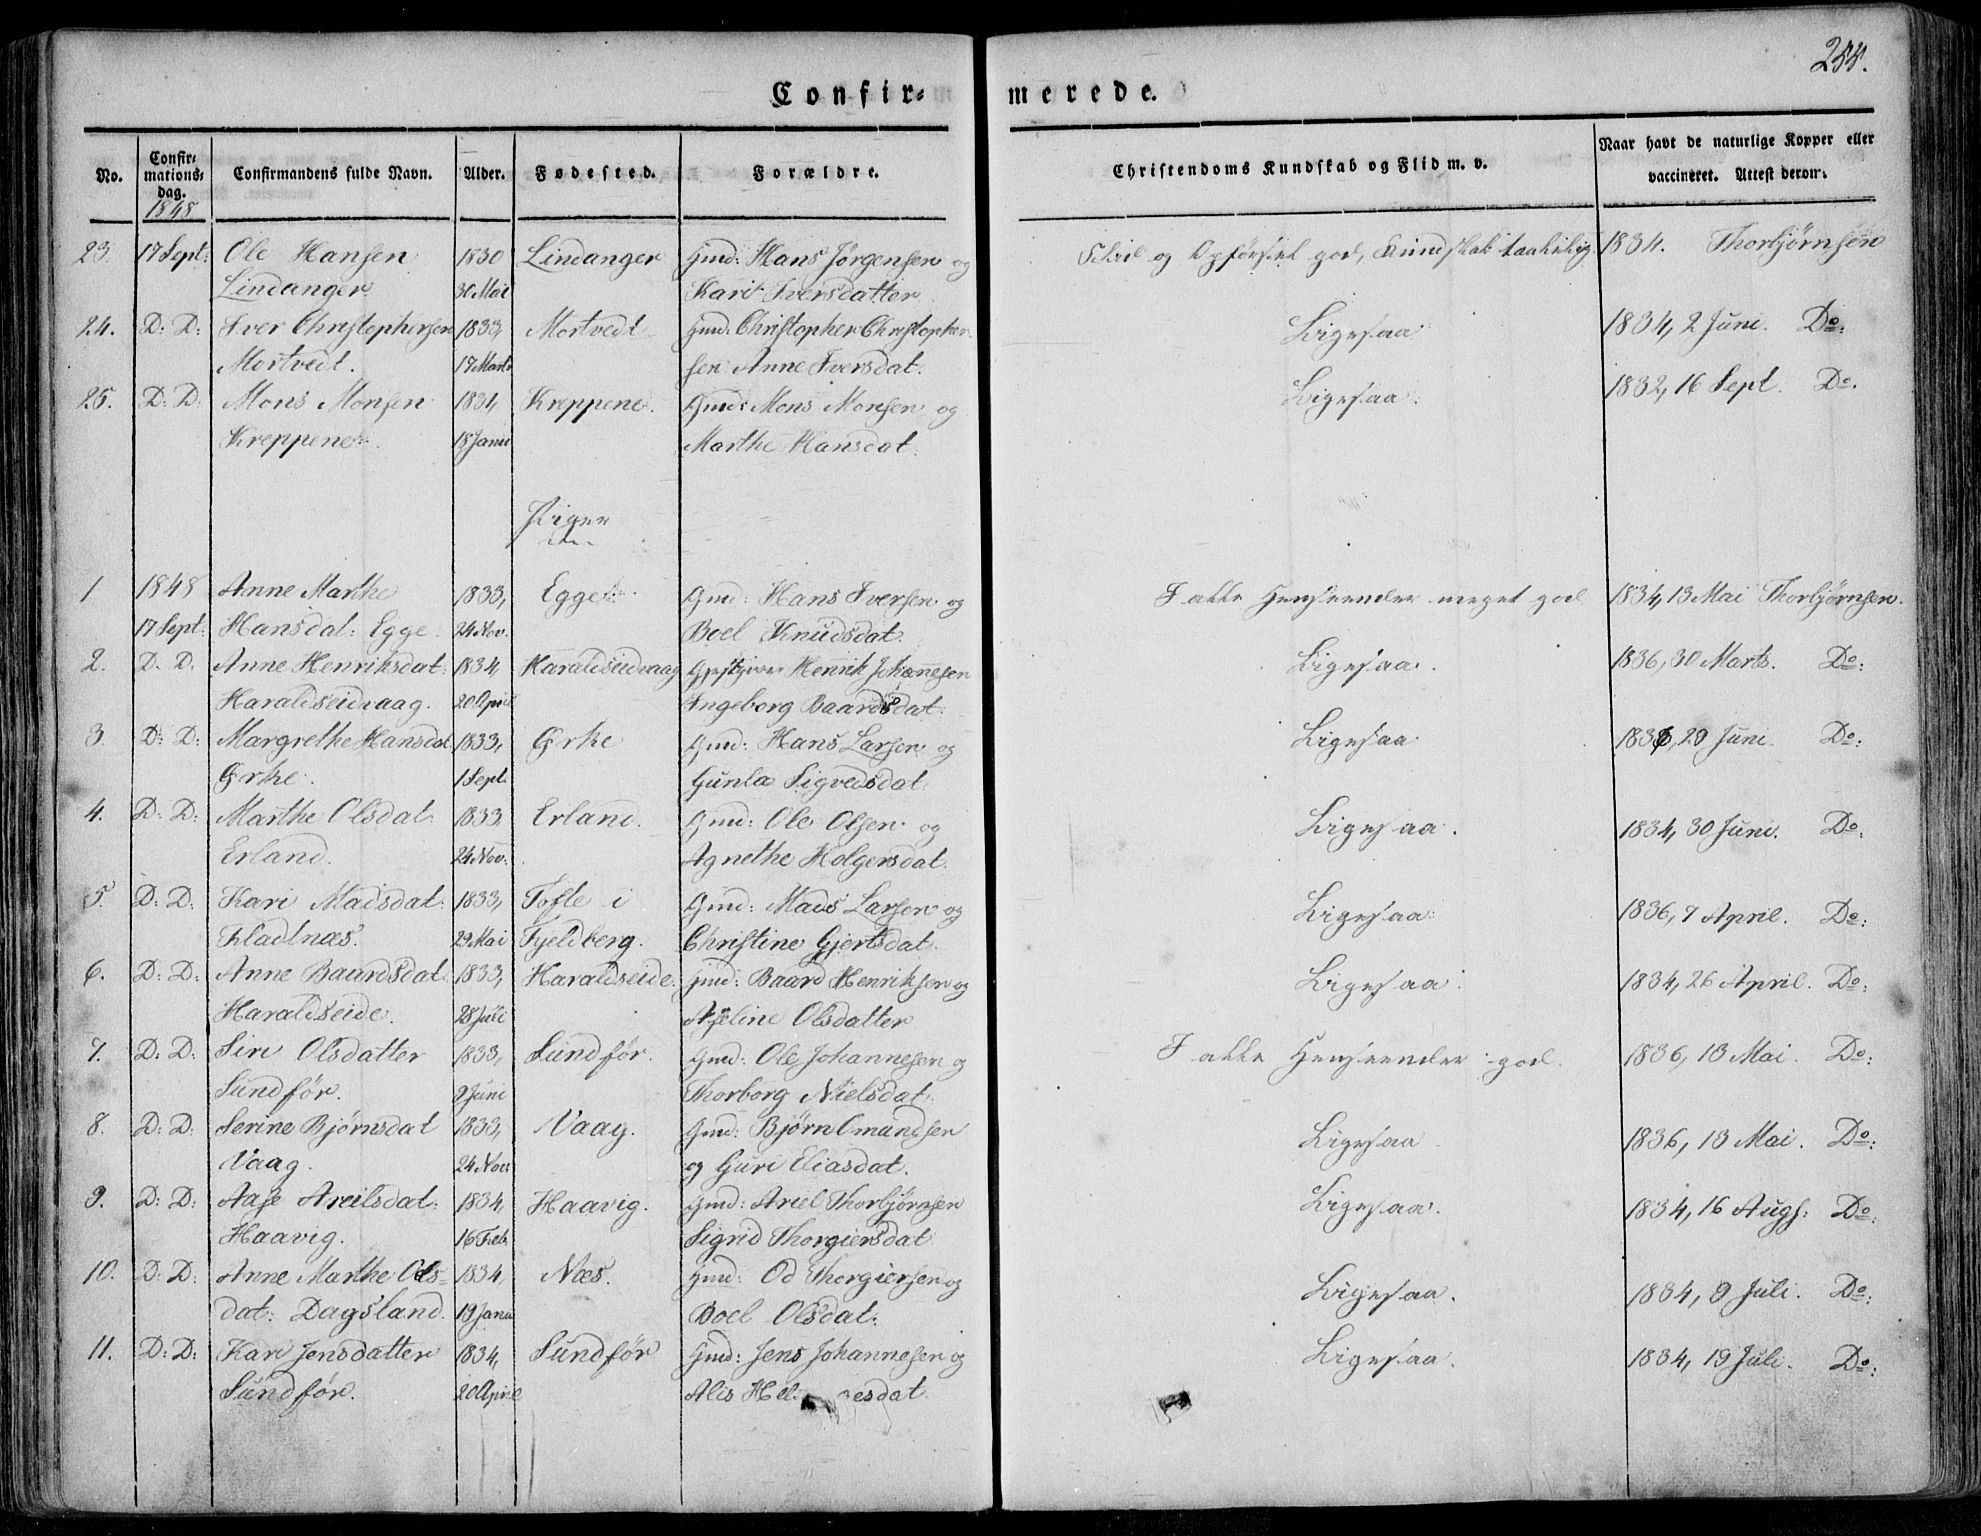 255.
Confir- merede.
No. Confirmationsdag. Confirmandens fulde Navn. Alder. Fødested. Forældre. Christendoms Kundskab og Flid m. v. Naar havt de naturlige Kopper eller vaccineret. Attest derom.
1848
23. 17 Sept: Ole Hansen 1830 Lindanger Gmd: Hans Jørgensen og Flid og Opførsel god, Kundskab taalelig. 1834. Thorbjørnsen
Lindanger. 30 Mai Kari Iversdatter
24. D: D: Iver Christophersen 1833, Mortvedt Gmd: Christopher Christopher- Ligesaa 1834, 2 Juni. Do:
Mortvedt. 17 Marts sen Anne Iversdat.
25. D: D: Mons Monsen 1831, Kreppene. Gmd: Mons Monsen og Ligesaa. 1832, 16 Sept. Do.
Kreppene. 18 Janu Marthe Hansdat.
Piger
1 1848 Anne Marthe 1833, Egge Gmd: Hans Iversen og I alle Henseender meget god 1834, 13 Mai Thorbjørnsen.
17 Sept: Hansdat: Egge. 24 Nov. Boel Knudsdat.
2. D: D: Anne Henriksdat: 1834, Haraldseidvaag Gjestgiver Henrik Johannesen Ligesaa. 1836, 30 Marts. Do:
Haraldseidvaag. 20 April Ingeborg Baardsdat.
3. D: D: Margrethe Hansdat 1833, Ørke Gmd: Hans Larsen og Ligesaa 1836, 29 Juni. Do:
Ørke. 1 Sept. Gunla Sigvedsdat.
4. D: D: Marthe Olsdat: 1833 Erland. Gmd: Ole Olsen og Ligesaa. 1834, 30 Juni. Do:
Erland. 24 Nov: Agnethe Holgersdat.
5. D: D: Kari Madsdat: 1833, Tofte i Gmd: Mads Larsen og Ligesaa: 1836, 7 April. Do:
Fladnæs. 29 Mai Fjeldberg. Christine Gjertsdat.
6. D: D: Anne Baardsdat. 1833, Haraldseide. Gmd: Baard Henriksen og Ligesaa. 1834, 26 April. Do:
Haraldseide. 28 Juli Aseline Olsdatter
7. D: D: Siri Olsdatter 1833, Sundfør. Gmd: Ole Johannesen og I alle Henseender god. 1836, 13 Mai. Do:
Sundfør. 9 Juni Thorborg Nielsdat.
8. D: D: Serine Bjørnsdat 1833, Vaag. Gmd: Bjørn Omundsen Ligesaa 1836, 13 Mai. Do:
Vaag. 24 Nov og Guri Eliasdat.
9. D: D: Aase Areilsdat: 1834, Haavig. Gmd: Ariel Thorbjørnsen Ligesaa. 1834, 16 Augs: Do:
Haavig. 16 Feb. Sigrid Thorgiersdat
10. D: D: Anne Marthe Ods- 1834, Næs. Gmd: Od Thorgiersen og Ligesaa. 1834, 9 Juli. Do:
dat: Dagsland. 19 Janu Boel Olsdat.
11. D: D: Kari Jensdatter 1834, Sundfør Gmd: Jens Johannesen og Ligesaa. 1834, 19 Juli. Do:
Sundfør. 20 April Alis